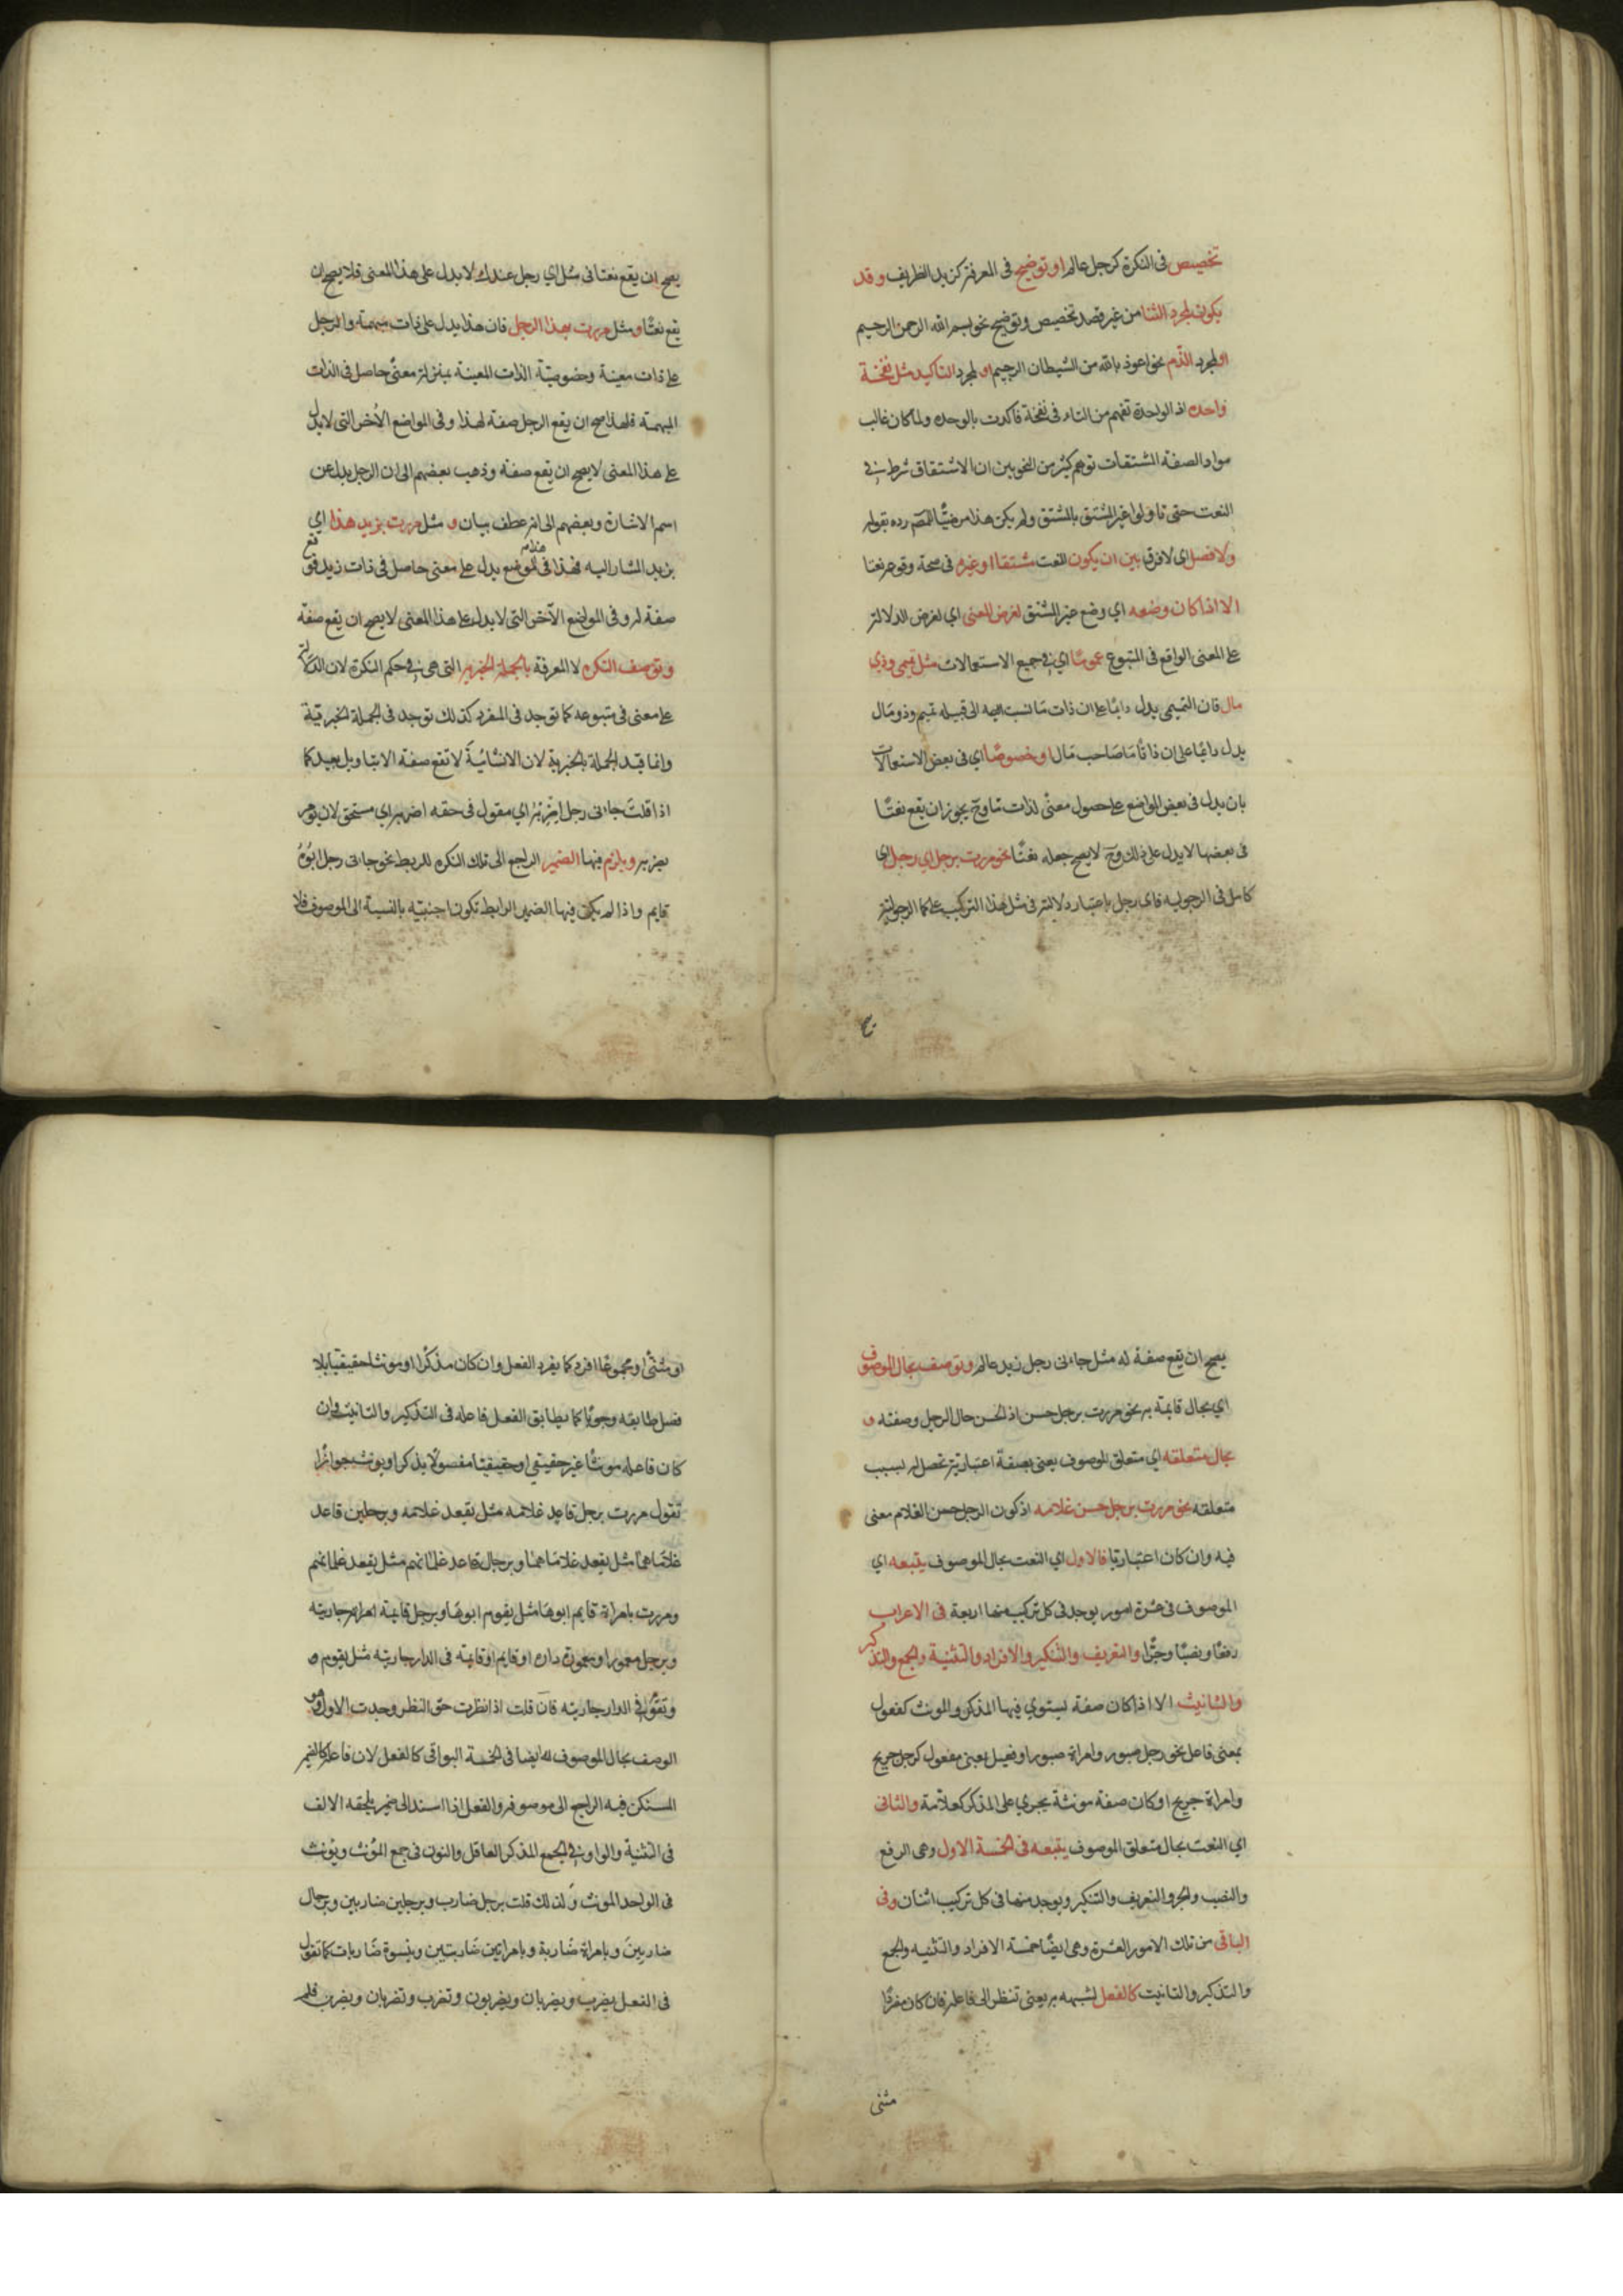 تخصيص فى النكرة كرجل عالم او توضيح فى المعرفة كزيد الظريف وقد
يكون لمجرد الثنا من غير قصد تخصيص وتوضيح نحو بسم الله الرحمن الرحيم
او لمجرد الذم نحو اعوذ بالله من الشيطان الرجيم او لمجرد التاكيد مثل نفخة
واحده اذ الواحدة تفهم من التاء فى نفخة فاكدت بالوحده ولما كان غالب
مواد الصفة المشتقات توهم كثير من النحويين ان الاشتقاق شرط فى
النعت حتى تاولوا غير المشتق بالمشتق ولم يكن هذا مرضيًا للمص رده بقوله
ولا فصل اى لا فرق بين ان يكون النعت مشتقا او غيره فى صحة وقوعه نعتا
الا اذا كان وضعه اي وضع غير المشتق لغرض المعنى اي لغرض الدلالة
على المعنى الواقع فى المتبوع عمومًا اي فى جميع الاستعمالات مثل تميمى وذي
مال فان التميمى يدل دايمًا على ان ذات ما نسبت اليه الى قبيله تميم وذو مال
يدل دايمًا على ان ذاتًا ما صاحب مال او خصوصًا اي فى بعض الاستعمالات
بان يدل فى بعض المواضع على حصول معنًى لذات ما وح يجوز ان يقع نعتًا
فى بعضها لا يدل على ذلك وح لا يصح جعله نعتًا نحو مررت برجل اي رجل اى
كامل فى الرجوليه فاى رجل باعتبار دلالته فى مثل هذا التركيب على كمال الرجولية
يصح ان يقع نعتا فى مثل اي رجل عندك لا يدل على هذا المعنى فلا يصح ان
يقع نعتًا ومثل مررت بهذا الرجل فان هذا يدل على ذات مبهمة والرجل
على ذات معينة وخصوصيّة الذات المعينة بمنزلة معنًى حاصل فى الذات
المبهمة فلهذا صح ان يقع الرجل صفة لهذا وفى المواضع الاُخر التى لا يدل
على هذا المعنى لا يصح ان يقع صفة وذهب بعضهم الى ان الرجل بدل عن
اسم الاشارة وبعضهم الى انه عطف بيان و مثل مررت بزيد هذا اي
بزيد المشار اليه فهذا فى الموضع يدل على معنى حاصل فى ذات زيد فوقع
صفة له وفى المواضع الاُخر التى لا يدل على هذا المعنى لا يصح ان يقع صفة
وتوصف النكره لا المعرفة بالجملة الخبرية التى هى فى حكم النكرة لان الدلالة
على معنى فى متبوعه كما توجد فى المفرد كذلك توجد فى الجملة الخبريّة
وانما قيد الجملة بالخبرية لان الانشائيّة لا تقع صفة الا بتاويل بعيد كما
اذا قلت جاءنى رجل اضربه اي مقول فى حقه اضربه اي مستحق لان يومر
بضربه ويلزم فيها الضمير الراجع الى تلك النكره للربط نحو جاءنى رجل ابوه
قايم واذا لم يكن فيها الضمير الرابط تكون اجنبيّه بالنسبة الى الموصوف فلا
يصح ان يقع صفة له مثل جاءنى رجل زيد عالم وتوصف بحال الموصوف
اي بحال قايمة به نحو مررت برجل حسن اذ الحسن حال الرجل وصفته و
بحال متعلقه اي متعلق الموصوف يعنى بصفة اعتبارية تحصل له بسبب
متعلقه نحو مررت برجل حسن غلامه اذ كون الرجل حسن الغلام معنى
فيه وان كان اعتباريا فالاول اي النعت بحال الموصوف يتبعه اي
الموصوف فى عشرة امور يوجد فى كل تركيب منها اربعة فى الاعراب
رفعًا ونصبًا وجرًا والتعريف والتنكير والافراد والتثنية والجمع والتذكير
والتانيث الا اذا كان صفة يستوي فيها المذكر والمونث كفعول
بمعنى فاعل نحو رجل صبور وامراة صبور او فعيل بمعنى مفعول كرجل جريح
وامراة جريح او كان صفة مونثة يجري على المذكر كعلّامة والثانى
اي النعت بحال متعلق الموصوف يتبعه فى الخمسة الاول وهى الرفع
والنصب والجر والتعريف والتنكير ويوجد منها فى كل تركيب اثنان وفى
الباقى من تلك الامور العشرة وهى ايضًا خمسة الافراد والتثنيه والجمع
والتذكير والتانيث كالفعل لشبهه به يعنى تنظر الى فاعله فان كان مفردًا
مثنى
او مثنًى او مجموعًا افرد كما يفرد الفعل وان كان مذكرًا او مونثا حقيقيًا بلا
فصل طابقه وجوبًا كما يطابق الفعل فاعله فى التذكير والتانيث وان
كان فاعله مونثًا غير حقيقي او حقيقيًا مفصولًا يذكر او يونث جوازًا
تقول مررت برجل قاعد غلامه مثل يقعد غلامه وبرجلين قاعد
غلاماهما مثل يقعد غلاماهما وبرجال قاعد غلمانهم مثل يقعد غلمانهم
ومررت بامراة قايم ابوها مثل يقوم ابوها وبرجل قايمة جاريته
وبرجل معمور او معمورة داره او قايم او قايمة فى الدار جاريته مثل يقوم
وتقوم فى الدار جاريته فان قلت اذا نظرت حق النظر وجدت الاول وهو
الوصف بحال الموصوف له ايضا فى الخمسة البواقى كالفعل لان فاعله كالضمير
المستكن فيه الراجع الى موصوفه والفعل اذا اسند الى ضمير يلحقه الالف
فى التثنية والواو فى الجمع المذكر العاقل والنون فى جمع المؤنث ويؤنث
فى الواحد المونث ولذلك قلت برجل ضارب وبرجلين ضاربين وبرجال
ضاربين وبامراة ضاربة وبامراتين ضاربتين وبنسوة ضاربات كما تقول
فى الفعل يضرب ويضربان ويضربون وتضرب وتضربان ويضربن فلم